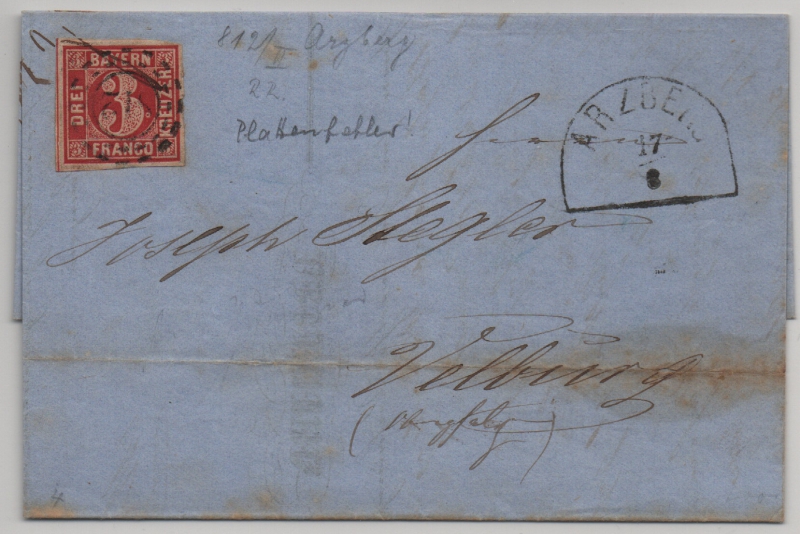 BAYERN
DREI
3
KREUZER
FRANCO
Arzberg
22.
Plattenfehler!
ARZBERG
17
8
Herrn
Joseph Stegler
Velburg
(Oberpfalz)
4